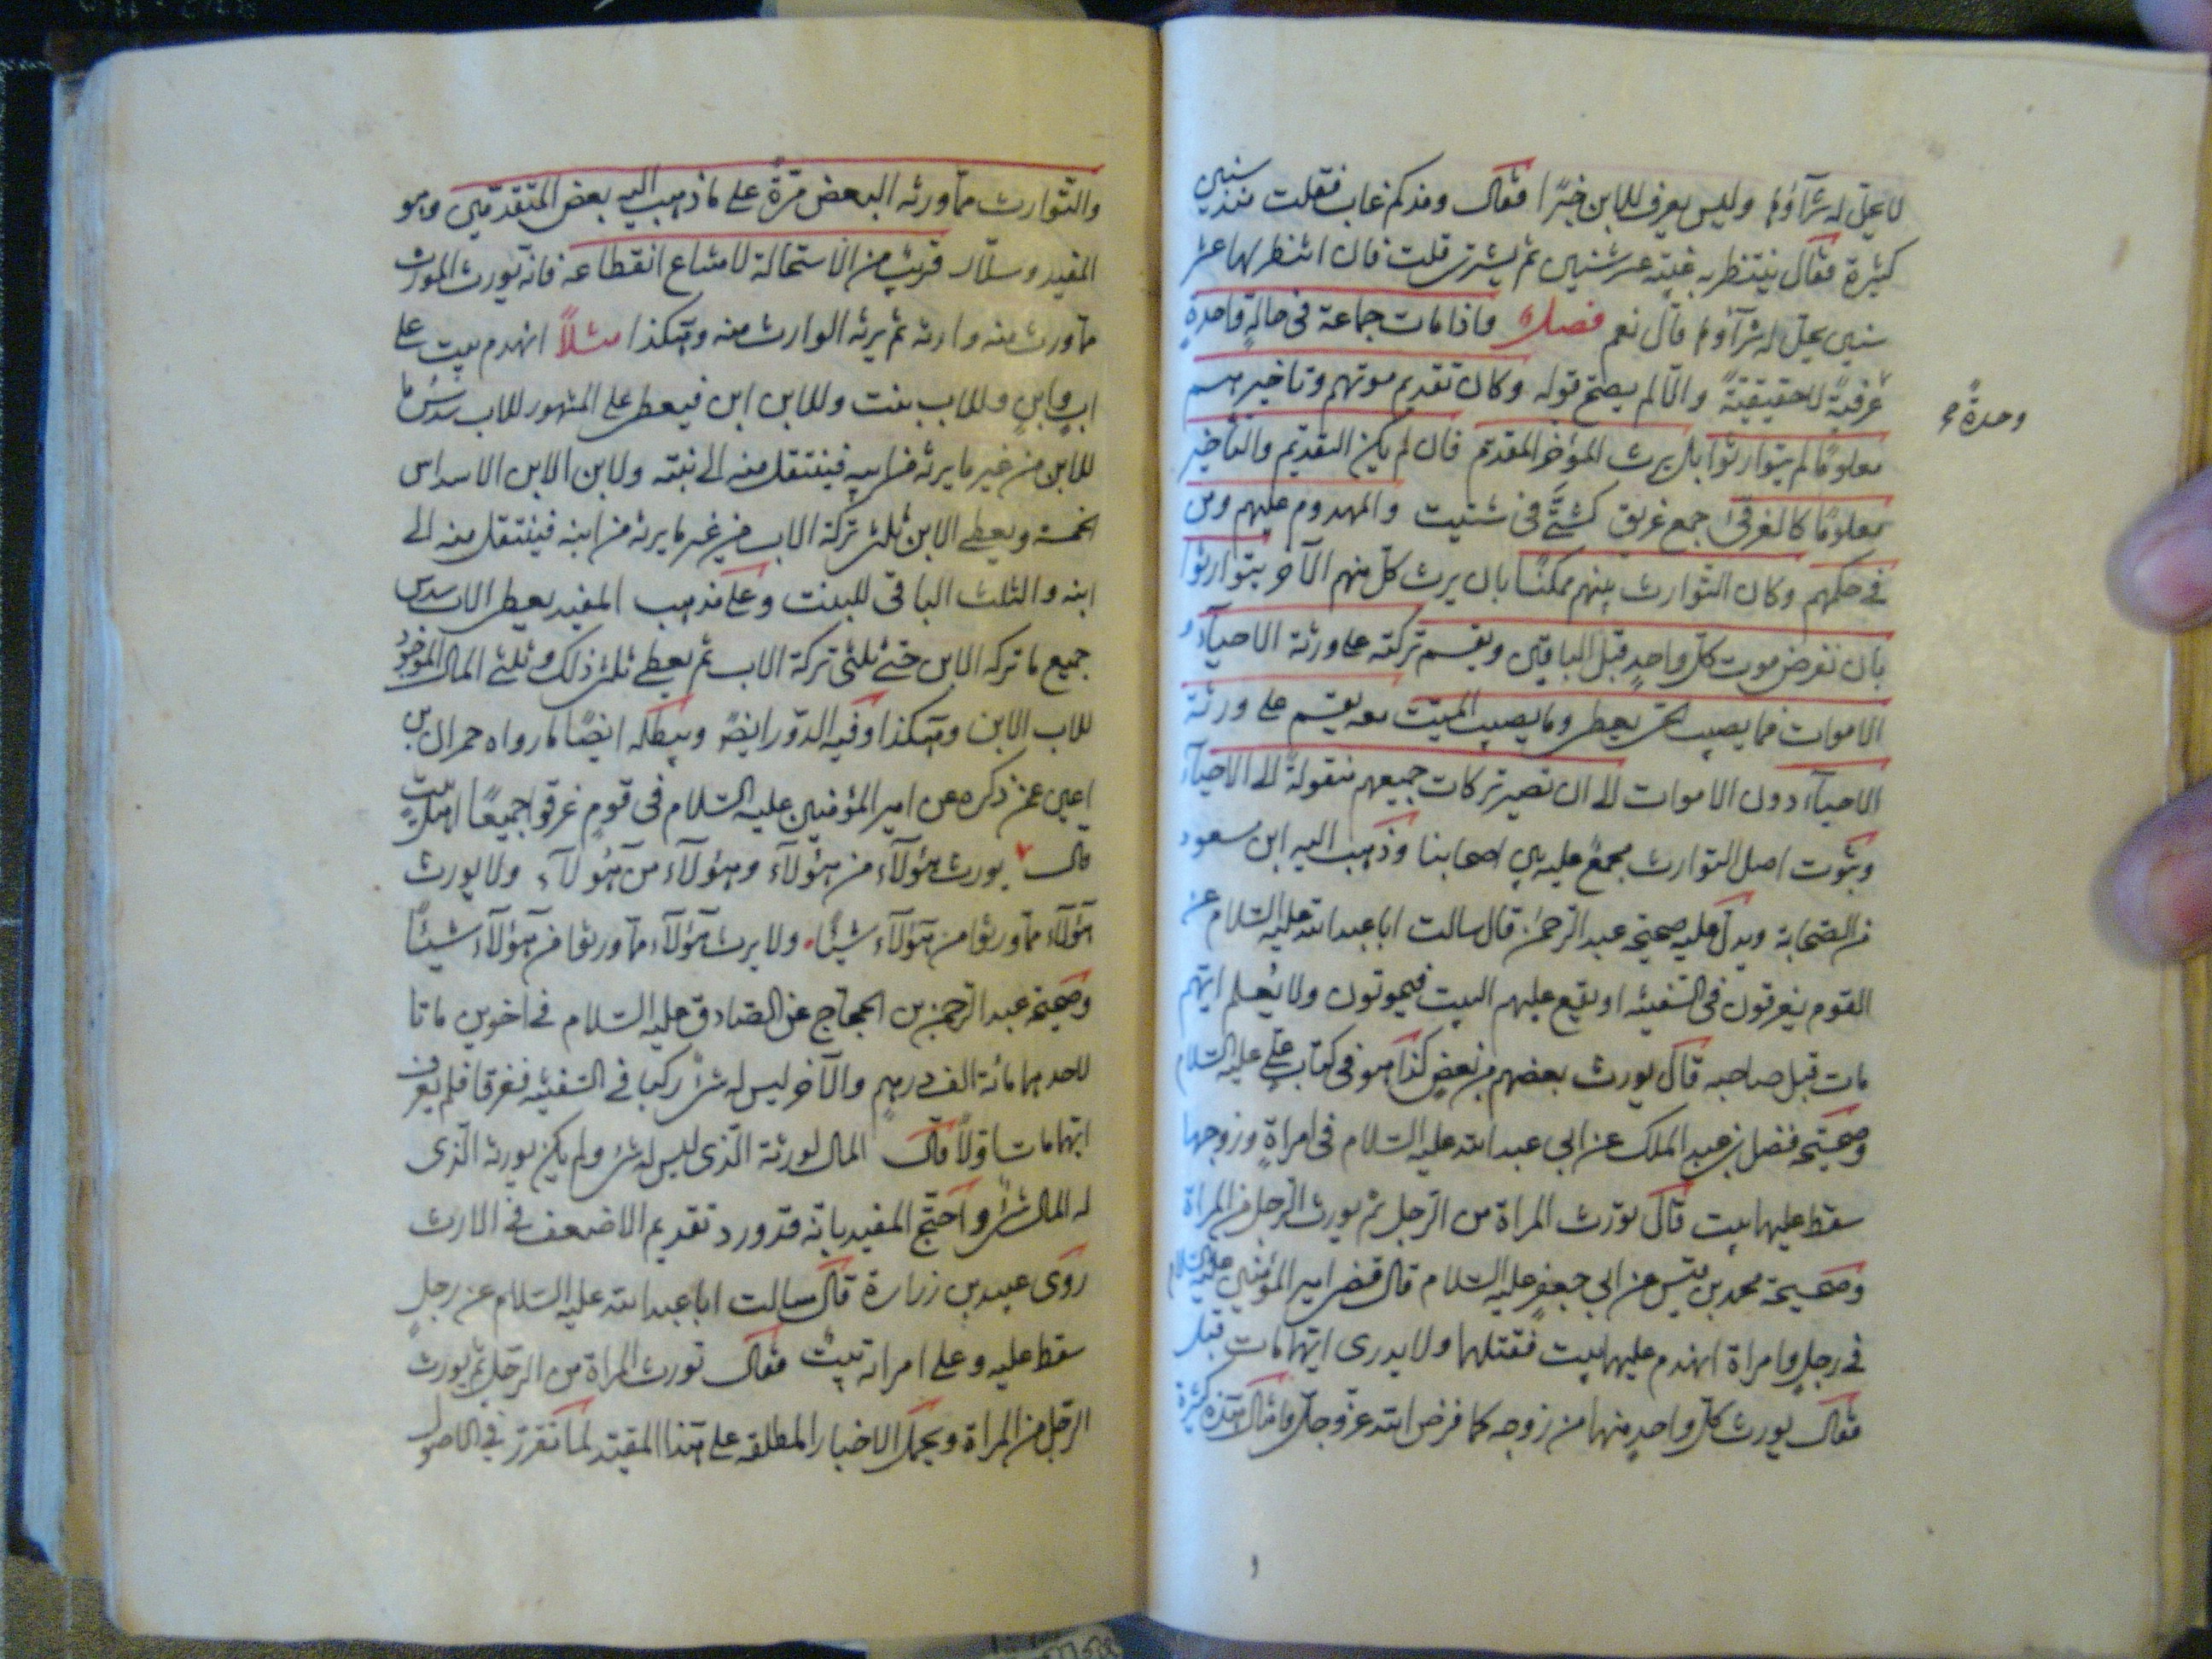 لا يحل له شراؤها وليس يعرف للابن خبرًا فقال ومنذ كم غاب فقلت منذ سنين
كثيرة فقال ينتظر به غيبته عشر سنين ثم يشترى قلت فان انتظر بها عشر
سنين يحل له شراؤها قال نعم فصل واذا مات جماعة فى حالةٍ واحدةٍ
وحدةً
عرفيةً لا حقيقيةً والّا لم يصح قوله وكان تقديم موتهم وتاخيرهم
معلومًا لم يتوارثوا بل يرث المؤخر المقدم فان لم يكن التقديم والتأخير
معلومًا كالغرقى جمع غريق كشتّى فى شتيت والمهدوم عليهم ومن
فى حكمهم وكان التوارث بينهم ممكنًا بان يرث كل منهم الآخر يتوارثوا
بان نفرض موت كل واحدٍ قبل الباقين ويقسم تركته على ورثة الاحياء و
الاموات فما يصيب الحى يعطى وما يصيب الميت معه يقسم على ورثة
الاحياء دون الاموات الى ان تصير تركات جميعهم منقولةً الى الاحياء
وثبوت اصل التوارث مجمع عليه بين اصحابنا وذهب اليه ابن مسعود
من الصحابة ويدل عليه صحيحة عبد الرحمن قال سالت ابا عبد الله عليه السلام عن
القوم يغرقون فى السفينه او يقع عليهم البيت فيموتون ولا يُعلم ايهم
مات قبل صاحبه قال يورث بعضهم من بعض كذا هو فى كتاب على عليه السلام
وصحيحة فضل بن عبد الملك عن ابى عبد الله عليه السلام فى امراةٍ وزوجها
سقط عليهما بيت قال تورث المراة من الرجل ثم يورث الرجل من المراة
وصحيحة محمد بن قيس عن ابى جعفر عليه السلام قال قضى امير المؤمنين عليه السلام
فى رجلٍ وامراة انهدم عليهما بيت فقتلهما ولا يدرى ايهما مات قبل
فقال يورث كل واحدٍ منهما من زوجه كما فرض الله عز وجل وامثال هذه كثيرة
والتوارث مما ورثه البعض مرّةً على ما ذهب اليه بعض المتقدمين وهو
المفيد وسلّار قريب من الاستحالة لامتناع انقطاعه فانه يورث المورث
مما ورث منه وارثه ثم يرثه الوارث منه وهكذا مثلًا انهدم بيت على
ابٍ وابنٍ وللاب بنت وللابن ابن فيعطى على المشهور للاب سدس ما
للابن من غير ما يرثه من ابيه فينتقل منه الى بنته ولابن الابن الاسداس
الخمسة ويعطى الابن ثلثى تركة الاب من غير ما يرثه من ابنه فينتقل منه الى
ابنه والثلث الباقى للبنت وعلى مذهب المفيد يعطى الاب سدس
جميع ما تركه الابن حتى ثلثى تركة الاب ثم يعطى ثلثى ذلك وثلثى المال الموجود
للاب الابن وهكذا وفيه الدور ايضًا ويبطله ايضًا ما رواه حمران بن
اعين عمن ذكره عن امير المؤمنين عليه السلام فى قومٍ غرقوا جميعًا اهل بيت
قال يورث هؤلاء من هؤلاء وهؤلاء من هؤلاء ولا يورث
هؤلاء مما ورثوا من هؤلاء شيئًا ولا يرث هؤلاء مما ورثوا من هؤلاء شيئًا
وصحيحة عبد الرحمن بن الحجاج عن الصادق عليه السلام فى اخوين ماتا
لاحدهما مائة الف درهم والآخر ليس له شئ ركبا فى السفينه فغرقا فلم يعرف
ايهما مات اولًا قال المال لورثة الذى ليس له شئ ولم يكن يورثه الذى
له المال شئ واحتج المفيد بانه قد ورد تقديم الاضعف فى الارث
روى عبيد بن زرارة قال سالت ابا عبد الله عليه السلام عن رجلٍ
سقط عليه وعلى امراته بيت فقال تورث المراة من الرجل ثم يورث
الرجل من المراة ويحمل الاخبار المطلقه على هذا المقيد لما تقرر فى الاصول